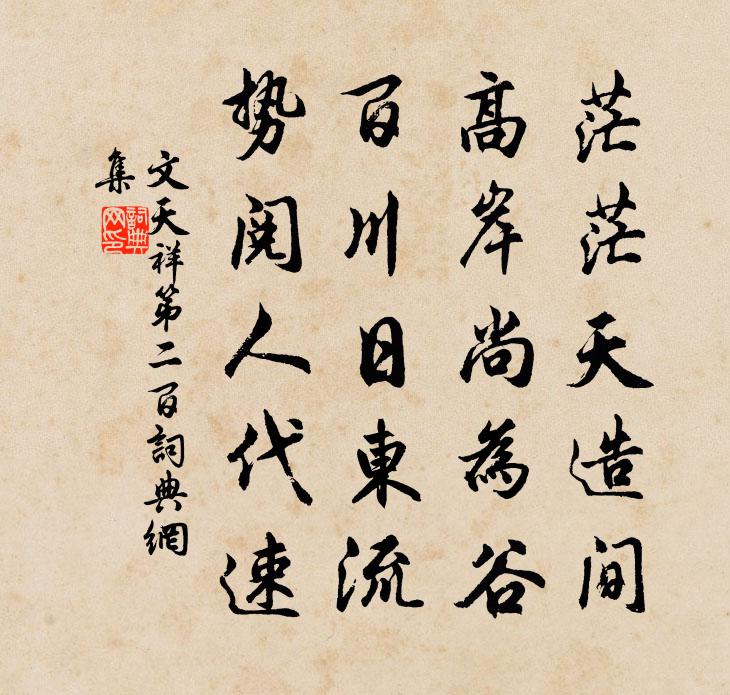 茫茫天造间
高岸尚為谷
百川日東流
势阅人代速
文天祥第二百詞典網
集
詞典
网印